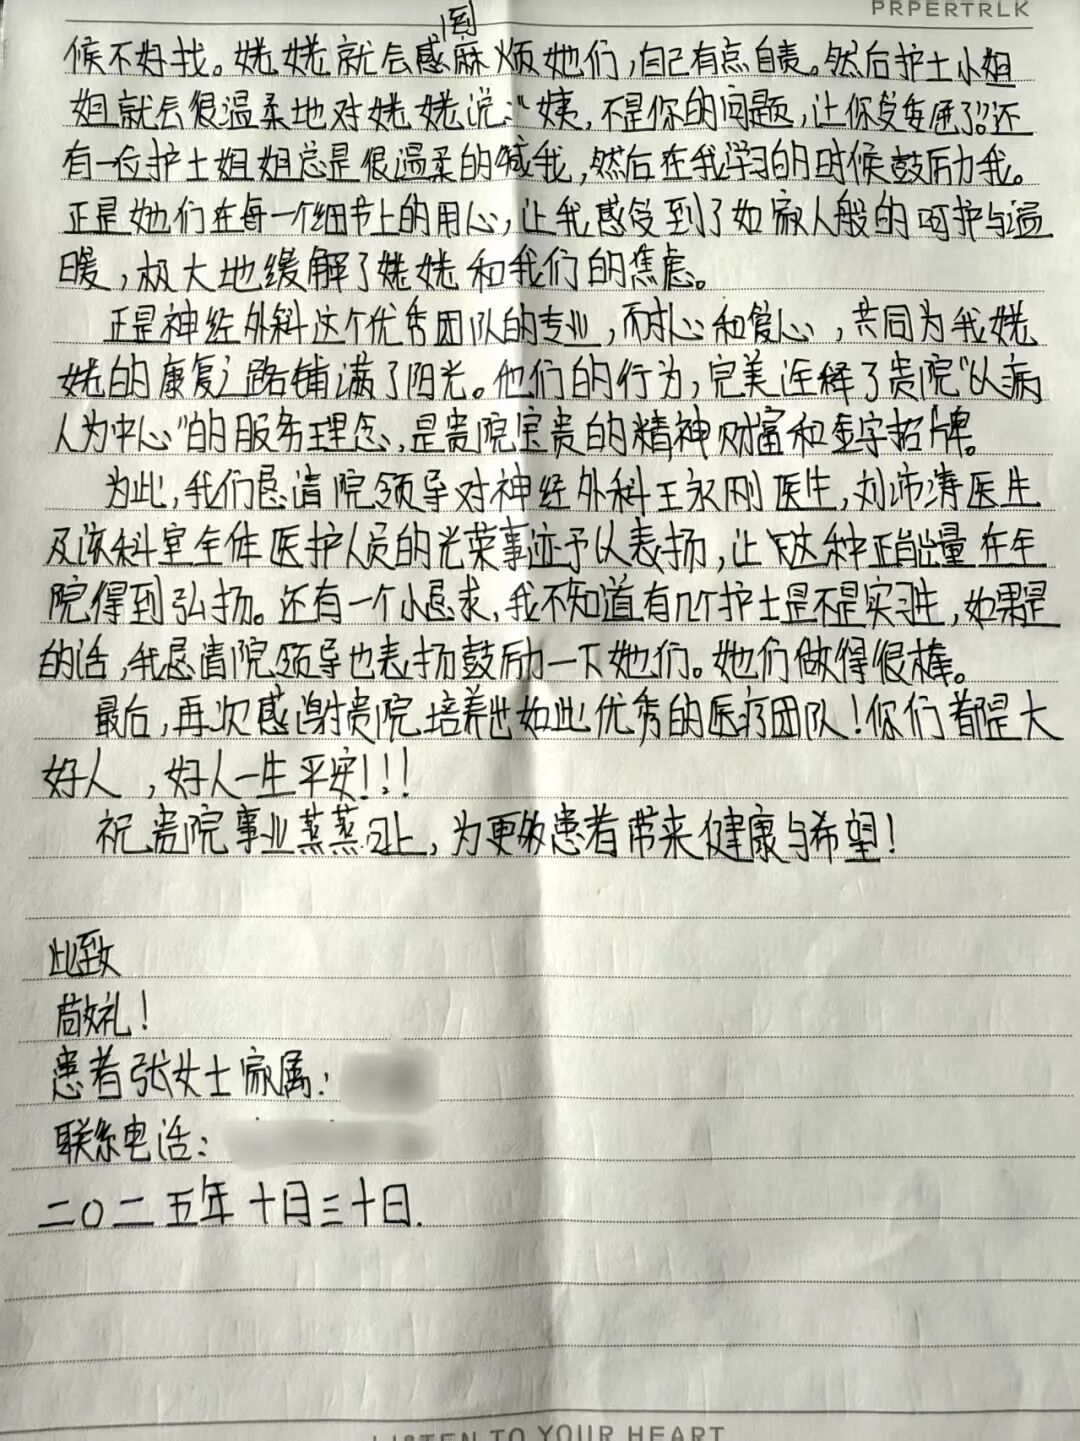 PRPERTRLK
候不好找。姥姥就会感到麻烦她们，自己有点自责。然后护士小姐
姐就会很温柔地对姥姥说:“姨，不是你的问题，让你受委屈了”还
有一位护士姐姐总是很温柔的喊我，然后在我学习的时候鼓励我。
正是她们在每一个细节上的用心，让我感受到了如家人般的呵护与温
暖，极大地缓解了姥姥和我们的焦虑。
正是神经外科这个优秀团队的专业，耐心和爱心，共同为我姥
姥的康复之路铺满了阳光。他们的行为，完美诠释了贵院“以病
人为中心”的服务理念，是贵院宝贵的精神财富和金字招牌。
为此，我们恳请院领导对神经外科王永刚医生，刘沛涛医生
及该科室全体医护人员的光荣事迹予以表扬，让这种正能量在全
院得到弘扬。还有一个小恳求，我不知道有几个护士是不是实习生，如果是
的话，我恳请院领导也表扬鼓励一下她们。她们做得很棒。
最后，再次感谢贵院培养出如此优秀的医疗团队！你们都是大
好人，好人一生平安！！！
祝贵院事业蒸蒸日上，为更多患者带来健康与希望！
此致
敬礼！
患者张女士家属：
联系电话：
二〇二五年十月三十日.
LISTEN TO YOUR HEART